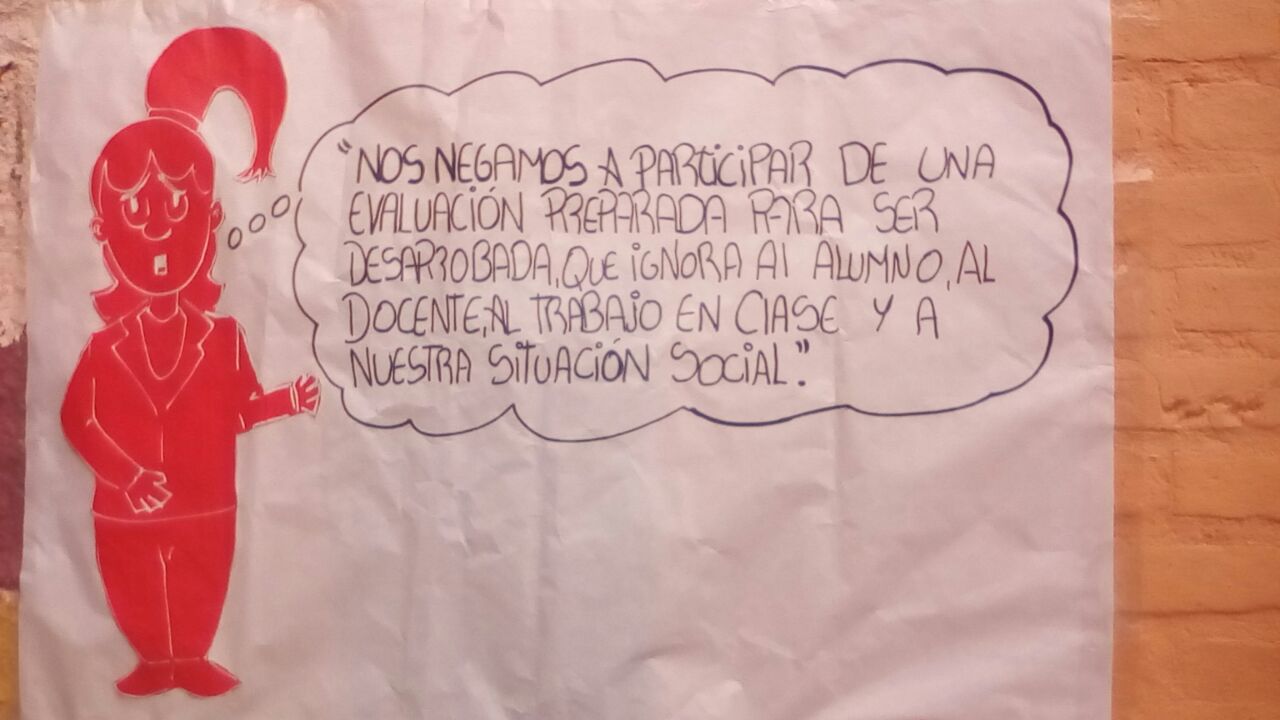 "NOS NEGAMOS A PARTICIPAR DE UNA
EVALUACIÓN PREPARADA PARA SER
DESAPROBADA, QUE IGNORA Al ALUMNO, AL
DOCENTE, AL TRABAJO EN ClASE Y A
NUESTRA SITUACIÓN SOCIAL."